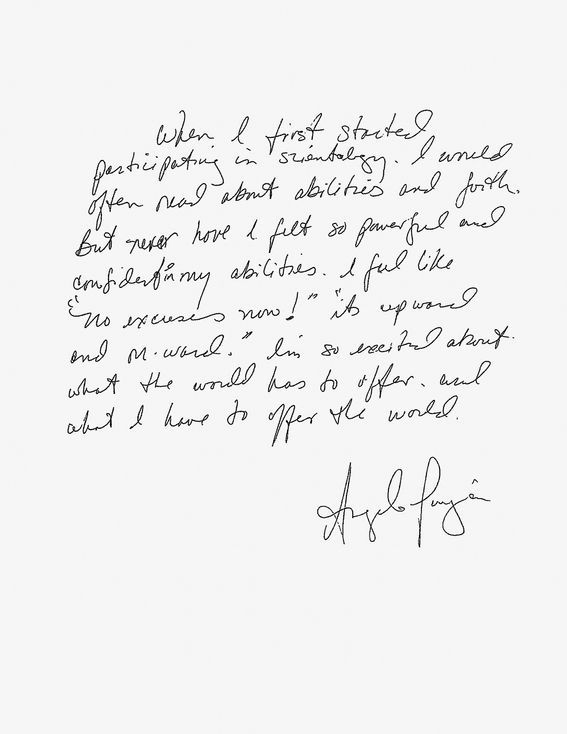 When I first started
participating in scientology. I would
often read about abilities and faith.
But never have I felt so powerful and
confident in my abilities. I feel like
"No excuses now!" "its upward
and on-ward." Im so excited about
what the world has to offer. and
what I have to offer the world.
Angelo